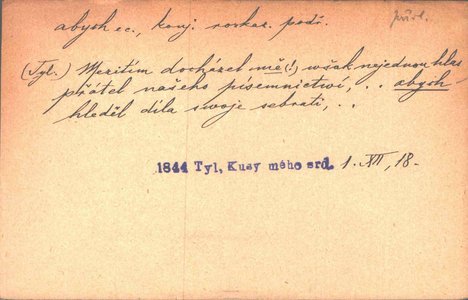 abych ec., konj. rozkaz. podř.
půvl.
(Tyl.) Mezitím docházel mě (!) však nejednou hlas
přátel našeho písemnictví, .. abych
hleděl díla swoje sebrati, ..
1844 Tyl, Kusy mého srd. 1. XII, 18.